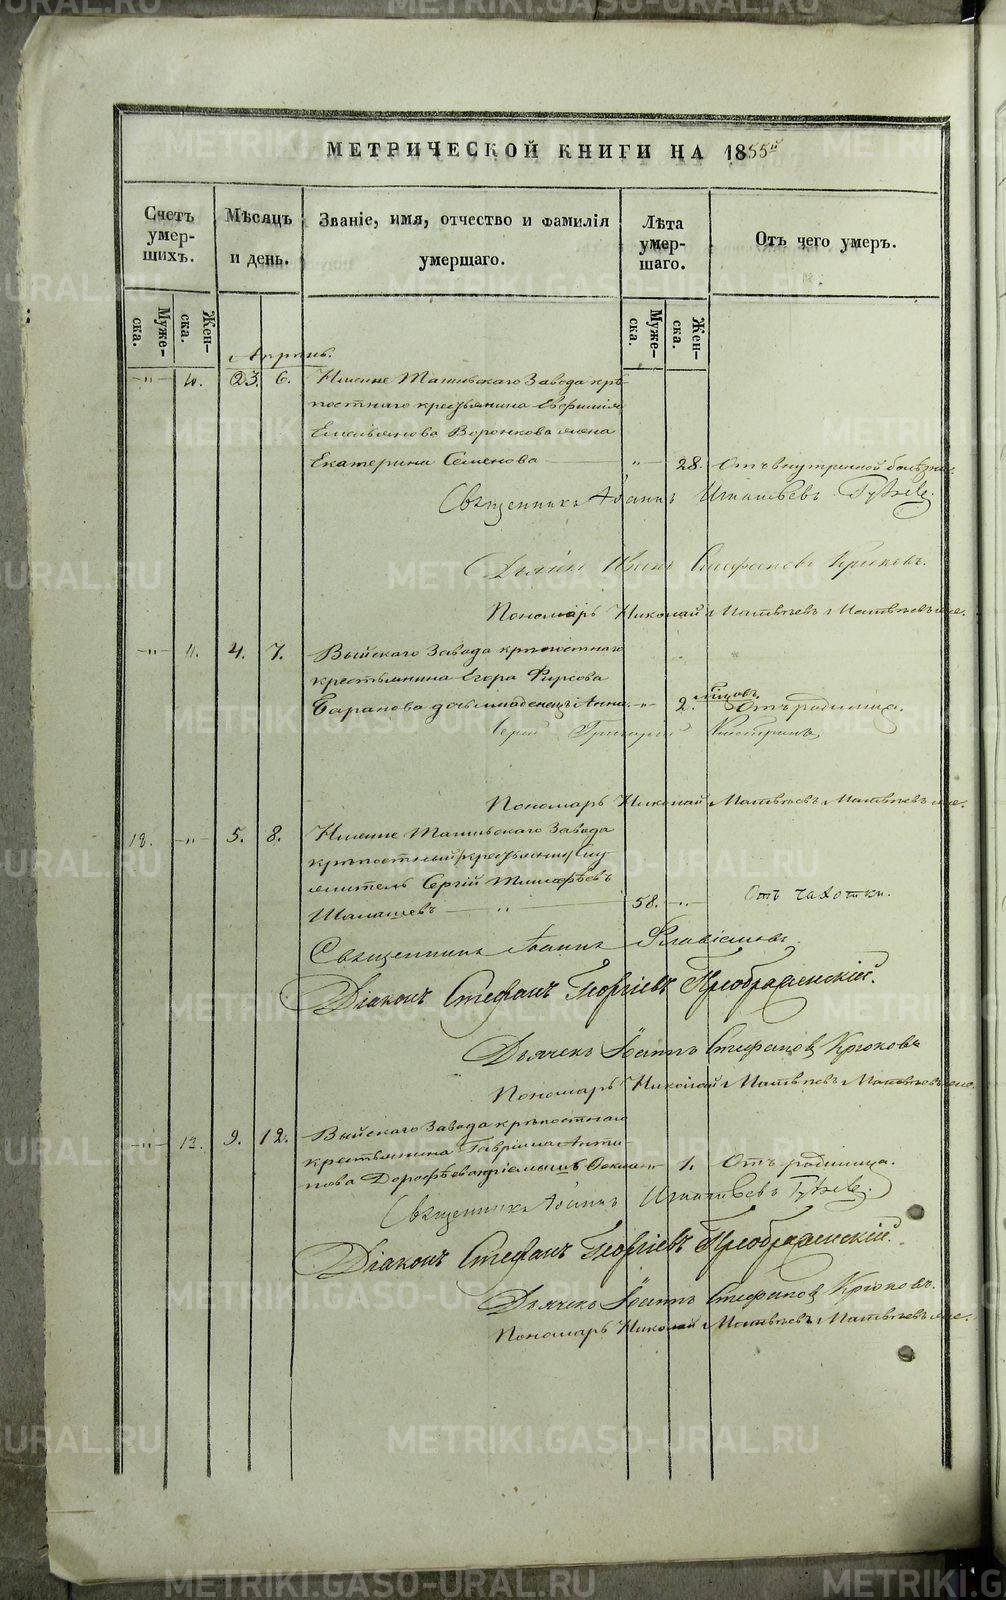 МЕТРИЧЕСКОЙ КНИГИ НА 1855й
Счетъ умер-шихъ.
Мѣсяцъ и день.
Званіе, имя, отчество и фамилія умершаго.
Лѣта умер-шаго.
Отъ чего умеръ.
Муже-ска.
Жен-ска.
Муже-ска.
Жен-ска.
Апрѣль.
10. 23. 6. Нижне Тагильскаго Завода крѣ
постнаго крестьянина
Емельянова Воронкова жена
Екатерина Семенова 28. Отъ внутренной болѣзни.
Священникъ Іоаннъ Игнатьевъ
Иванъ Стефановъ Крюковъ.
Пономарь Николай Матвѣевъ
11. 4. 7. Выйскаго Завода крѣпостнаго
крестьянина Егора Фирсова
Баранова дочь младенецъ Анна 2. мѣсяц. Отъ родимца.
Іерей Григорій
Пономарь Николай Матвѣевъ
18. 5. 8. Нижне Тагильскаго Завода
крѣпостный крестьянинъ
Сергій Тимофѣевъ
58. Отъ чахотки.
Священникъ Іоаннъ Флавіановъ.
Діаконъ Стефанъ Георгіевъ Преображенскій.
Дьячекъ Іоаннъ Стефановъ Крюковъ
Пономарь Николай Матвѣевъ
12. 9. 12. Выйскаго Завода крѣпостнаго
крестьянина Гавріила Анти
пова Дорофѣева 1. Отъ родимца.
Священникъ Іоаннъ Игнатьевъ
Діаконъ Стефанъ Георгіевъ Преображенскій.
Дьячекъ Іоаннъ Стефановъ Крюковъ.
Пономарь Николай Матвѣевъ
METRIKI.GASO-URAL.RU